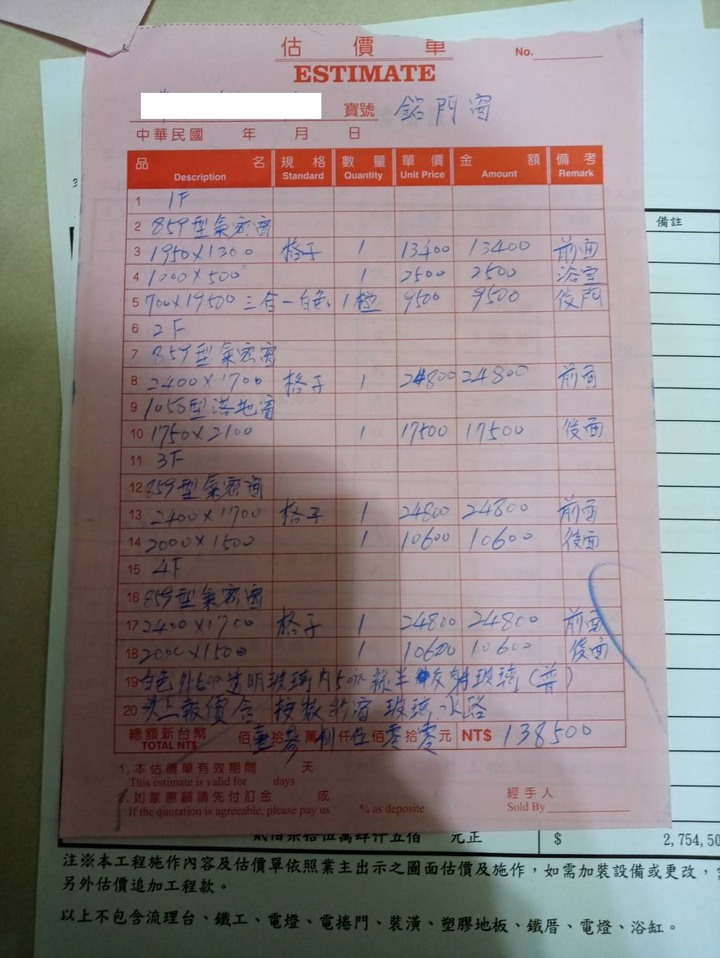 估價單
ESTIMATE
No.
寶號 鋁門窗
中華民國 年 月 日
品名 規格 數量 單價 金額 備考
Description Standard Quantity Unit Price Amount Remark
1 1F
2 859型氣密窗
3 1950X1300 格子 1 13400 13400 前面
4 1000X500 1 2500 2500 浴室
5 700X19500 三合一白色 1樘 9500 9500 後門
6 2F
7 859型氣密窗
8 2400X1700 格子 1 24800 24800 前面
9 1055型落地窗
10 1750X2100 1 17500 17500 後面
11 3F
12 859型氣密窗
13 2400X1700 格子 1 24800 24800 前面
14 2000X1500 1 10600 10600 後面
15 4F
16 859型氣密窗
17 2400X1700 格子 1 24800 24800 前面
18 2000X1500 1 10600 10600 後面
19 白色外5m透明玻璃內5m綠半反射玻璃(普)
20 以上報價含 拆窗 玻璃 水路
總額新台幣 佰壹拾參萬捌仟伍佰零拾零 NT$ 138500
TOTAL NT$
1.本估價單有效期間 天
This estimate is valid for days
2.如蒙惠顧請先付訂金 成
If the quotation is agreeable, please pay us % as deposite
經手人
Sold By
備註
貳佰柒拾伍萬肆仟五佰 元正 $ 2,754,50
注※本工程施作內容及估價單依照業主出示之圖面估價及施作，如需加裝設備或更改，
另外估價追加工程款。
以上不包含流理台、鐵工、電燈、電捲門、裝潢、塑膠地板、鐵厝、電燈、浴缸。